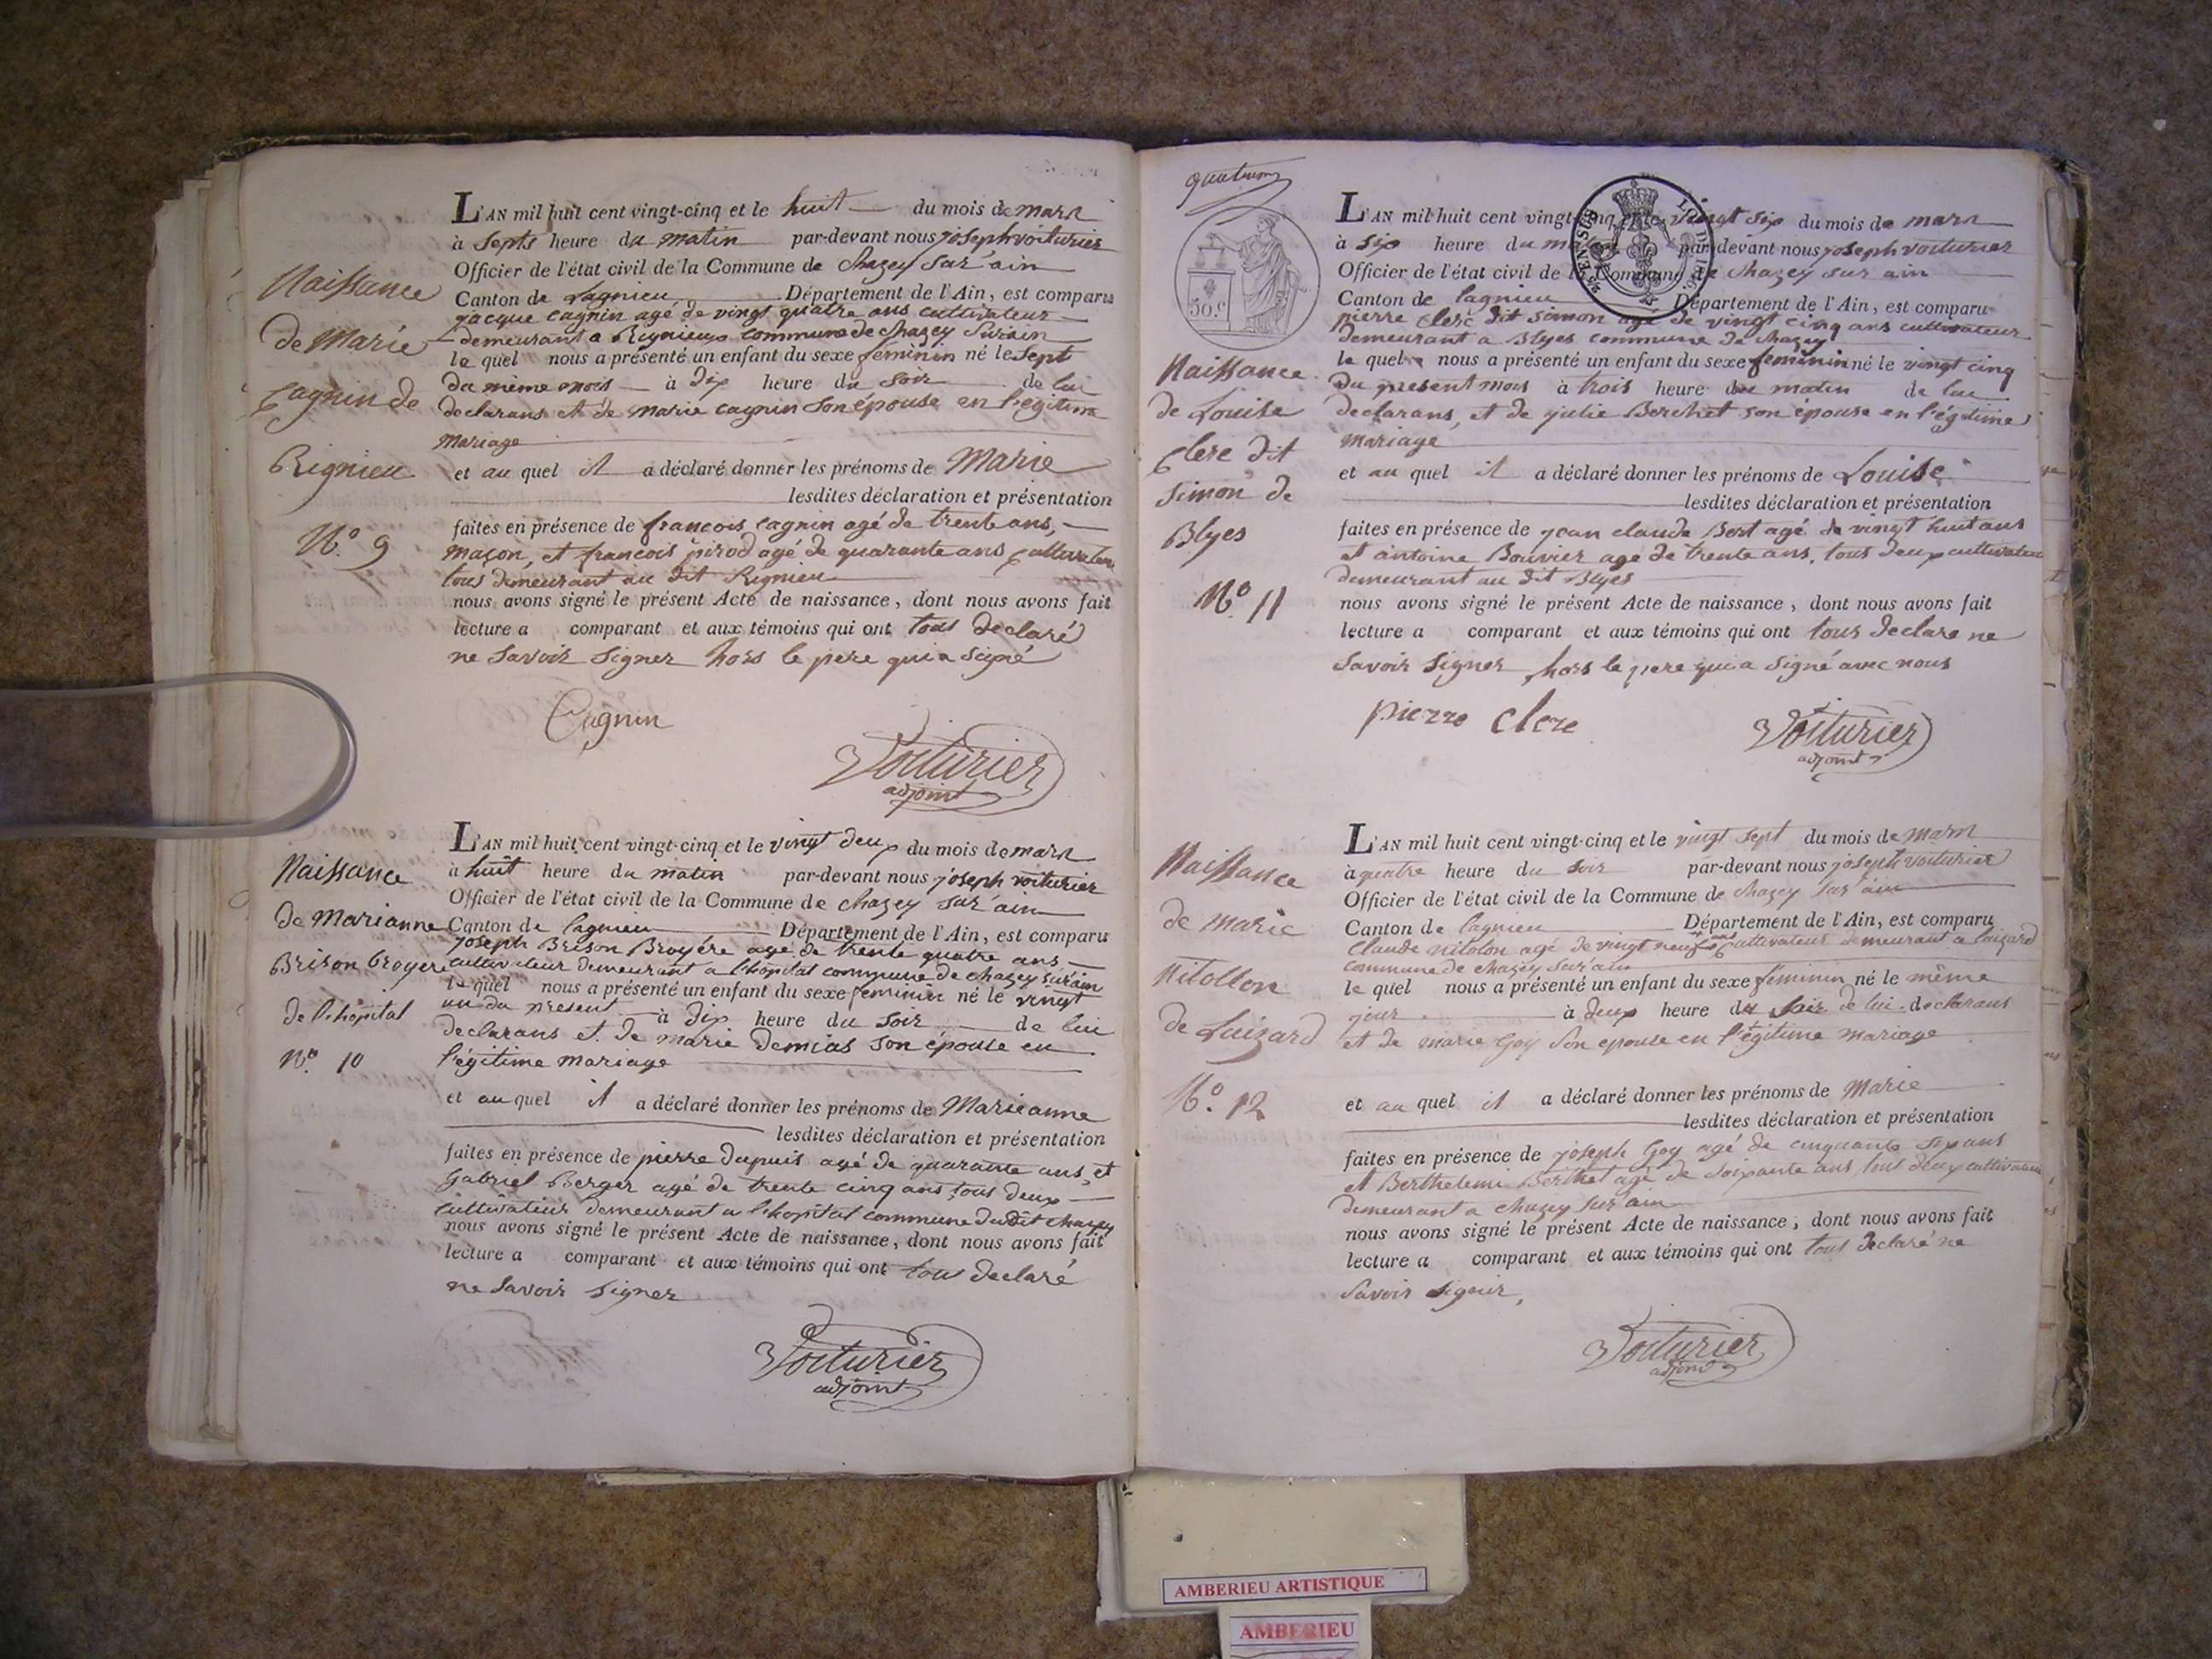 Naissance
de Marie
Cagnin de
Rignieu
N.º 9
L'AN mil huit cent vingt-cinq et le huit du mois de mars
à septs heure du matin par-devant nous joseph voiturier
Officier de l'état civil de la Commune de chazey sur ain
Canton de Lagnieu Département de l'Ain, est comparu
jacque cagnin agé de vingt quatre ans cultivateur
demeurant a Rignieux commune de chazey surain
le quel nous a présenté un enfant du sexe feminin né le sept
du même mois à dix heure du soir de lui
declarans et de marie cagnin son épouse en légitime
mariage
et au quel il a déclaré donner les prénoms de Marie
lesdites déclaration et présentation
faites en présence de francois cagnin agé de trente ans,
maçon, et francois pirod agé de quarante ans cultivateur
tous demeurant au dit Rignieu
nous avons signé le présent Acte de naissance, dont nous avons fait
lecture a comparant et aux témoins qui ont tous declaré
ne savoir signer hors le pere qui a signé
Cagnin
Voiturier
adjoint
Naissance
de Marianne
Brison broyere
de l'hopital
N.º 10
L'AN mil huit cent vingt-cinq et le vingt deux du mois de mars
à huit heure du matin par-devant nous joseph voiturier
Officier de l'état civil de la Commune de chazey sur ain
Canton de lagnieu Département de l'Ain, est comparu
joseph Brison Broyére agé de trente quatre ans
cultivateur demeurant a l'hopital commune de chazey surain
le quel nous a présenté un enfant du sexe feminin né le vingt
un du present à dix heure du soir de lui
declarans et de marie Demias son épouse en
légitime mariage
et au quel il a déclaré donner les prénoms de Marieanne
lesdites déclaration et présentation
faites en présence de pierre dupuis agé de quarante ans, et
Gabriel Berger agé de trente cinq ans tous deux
cultivateur demeurant a l'hopital commune dudit chazey
nous avons signé le présent Acte de naissance, dont nous avons fait
lecture a comparant et aux témoins qui ont tous declaré
ne savoir signer
Voiturier
adjoint
50.c
Naissance
de Louise
Clere dit
Simon de
Blyes
N.º 11
L'AN mil huit cent vingt-cinq et le vingt six du mois de mars
à six heure du matin par-devant nous joseph voiturier
Officier de l'état civil de la Commune de chazey sur ain
Canton de lagnieu Département de l'Ain, est comparu
pierre clere dit simon agé de vingt cinq ans cultivateur
demeurant a Blyes commune de chazey
le quel nous a présenté un enfant du sexe feminin né le vingt cinq
du present mois à trois heure du matin de lui
declarans, et de julie Berchet son épouse en légitime
mariage
et au quel il a déclaré donner les prénoms de Louise
lesdites déclaration et présentation
faites en présence de jean claude Bert agé de vingt huit ans
et antoine Bouvier agé de trente ans, tous deux cultivateur
demeurant au dit Blyes
nous avons signé le présent Acte de naissance, dont nous avons fait
lecture a comparant et aux témoins qui ont tous declare ne
savoir signer, hors le pere qui a signé avec nous
pierre clere
Voiturier
adjoint
Naissance
de marie
Nitollon
de Luizard
N.º 12
L'AN mil huit cent vingt-cinq et le vingt sept du mois de mars
à quatre heure du soir par-devant nous joseph voiturier
Officier de l'état civil de la Commune de chazey sur ain
Canton de lagnieu Département de l'Ain, est comparu
Claude nitolon agé de vingt neuf ans cultivateur demeurant a luizard
commune de chazey sur ain
le quel nous a présenté un enfant du sexe féminin né le même
jour à deux heure du soir de lui declarans
et de marie Goy son epouse en légitime mariage
et au quel il a déclaré donner les prénoms de Marie
lesdites déclaration et présentation
faites en présence de joseph Goy agé de cinquante six ans
et Berthelemi Berthet agé de soixante ans tous deux cultivateur
demeurant a chazey sur ain
nous avons signé le présent Acte de naissance, dont nous avons fait
lecture a comparant et aux témoins qui ont tous declaré ne
savoir signer,
Voiturier
adjoint
AMBERIEU ARTISTIQUE
AMBERIEU